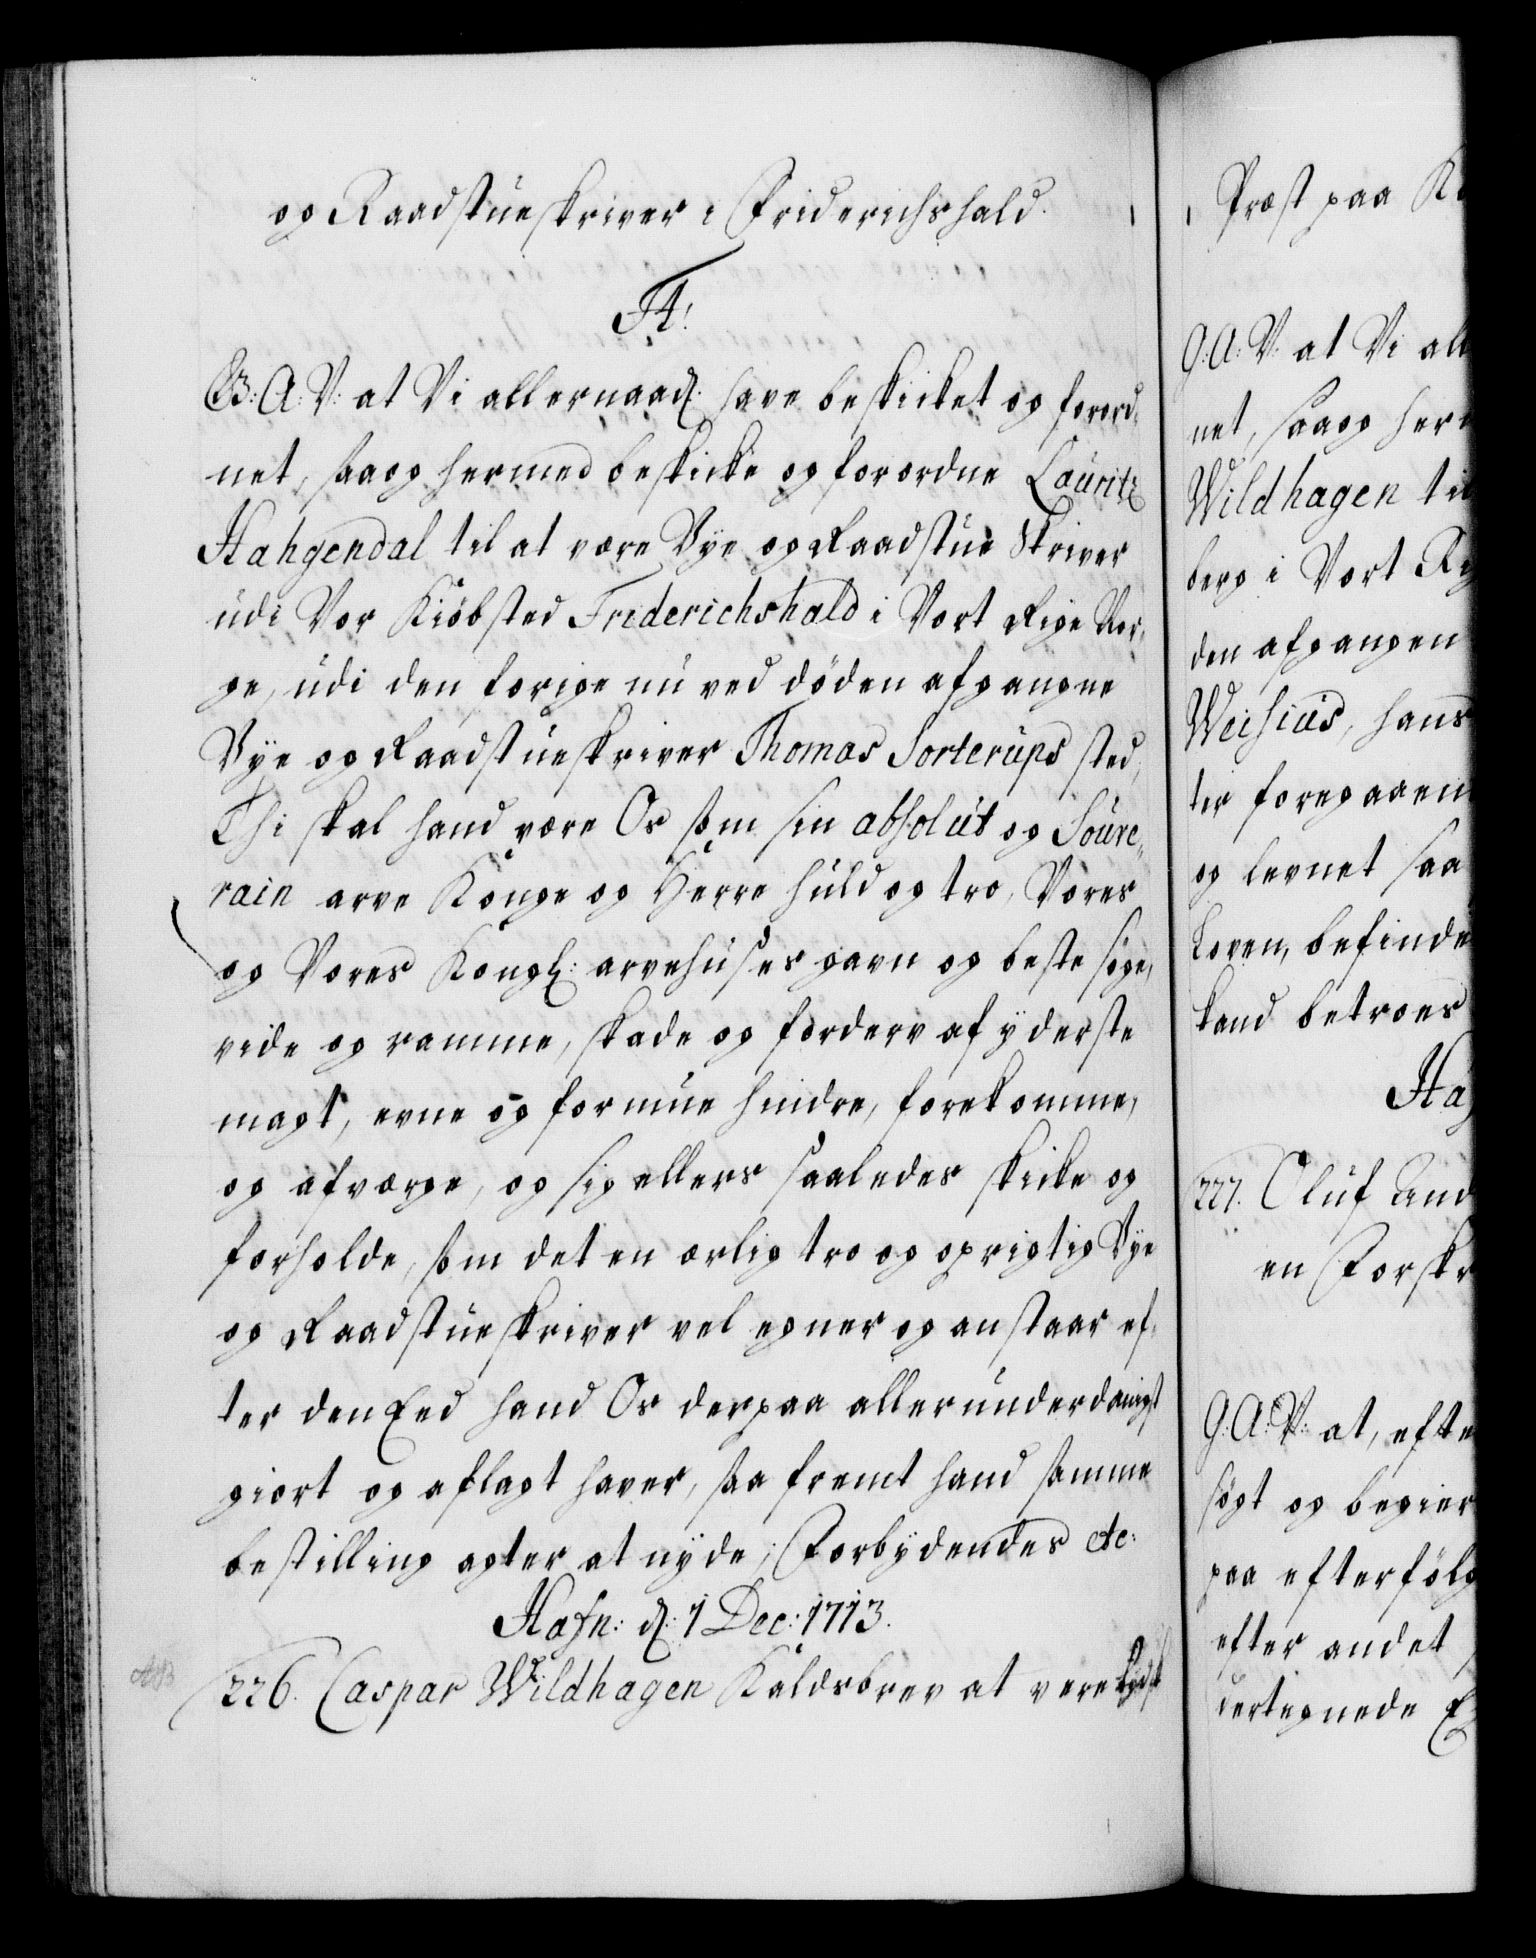 og Raadstueskriver i Friderichshald.
F4!
G: A: V: at Vi allernaad: have beskicket og forord-
net, saa og hermed beskicke og forordne Lauritz
Hahgendal til at være Bye og Raadstue Skriver
udi Vor Kiöbsted Friderichshald i Vort Rige Nor-
ge, udi den forige nu ved döden afgangne
Bye og Raadstueskriver Thomas Sorterups sted,
Thi skal hand være Os som sin absolut og Souve-
rain arve Konge og Herre huld og tro, Vores
og Vores Kongl: arvehuses gavn og beste söge,
vide og ramme, skade og forderv af yderste
magt, evne og formue hindre, forekomme,
og afværge, og sig ellers saaledes skicke og
forholde, som det en ærlig tro og oprigtig Bye
og Raadstueskriver vel egner og anstaar ef-
ter den Eed hand Os derpaa allerunderdanigst
giort og aflagt haver, saa fremt hand samme
bestilling agter at nyde; Forbydendes etc:
Hafn: d: 1 Dec: 1713.
226. Caspar Wildhagen Kaldsbrev at vere
Præst paa
G: A: V: at Vi all
net, saa og her
Wildhagen til
berg i Vort Ri
den afgangen
Weisius, hans
ter foregaaen
og levnet saa
Loven, befinde
kand betroes
Ha
227. Oluf And
en Forskr
G: A: V: at, efte
sögt og begier
paa efterfölg
efter andet
dertegnede